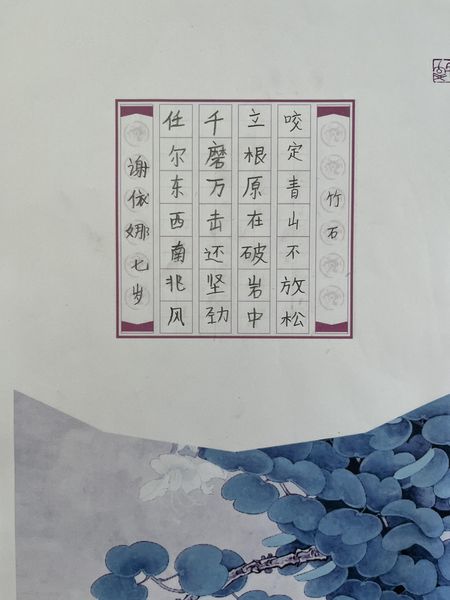 竹石
咬定青山不放松
立根原在破岩中
千磨万击还坚劲
任尔东西南北风
谢依娜七岁